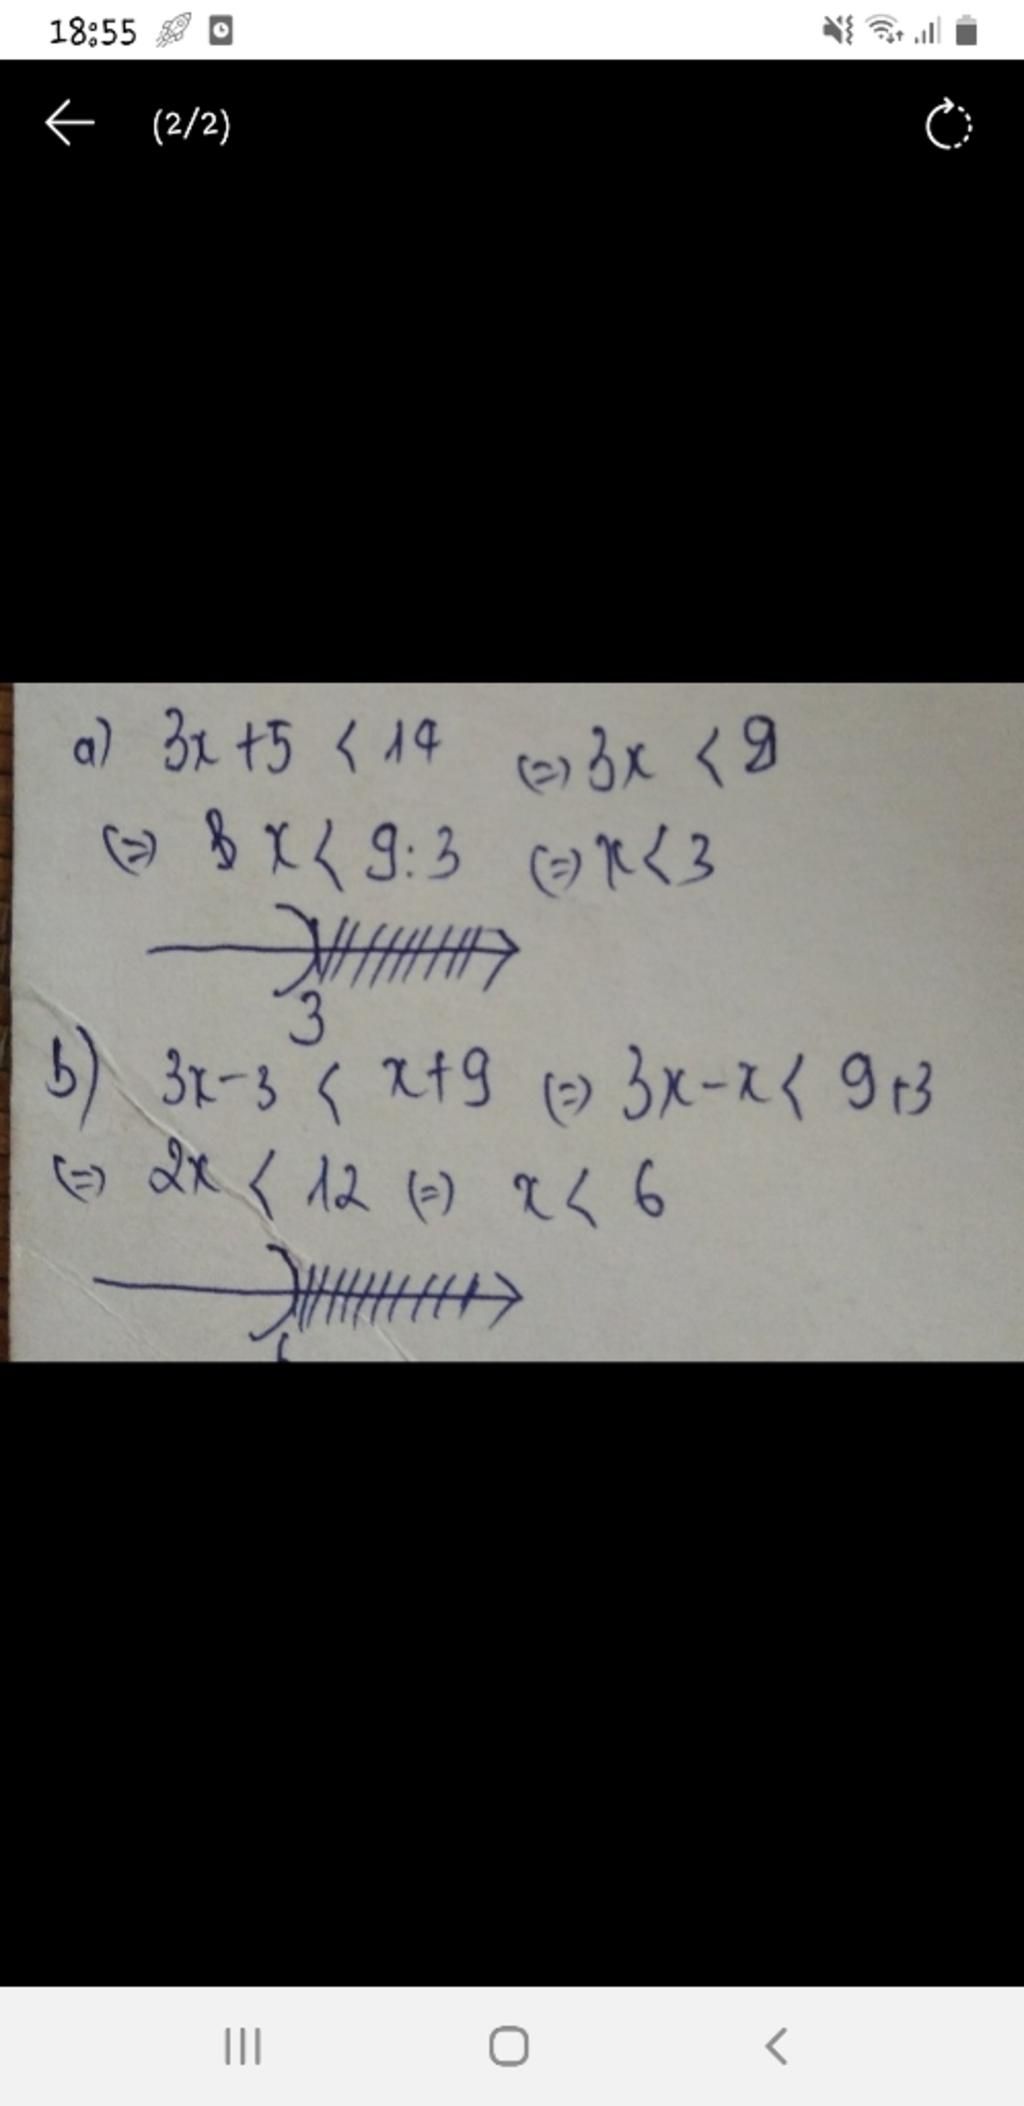 18:55
(2/2)
a) 3x + 5 < 14 (=) 3x < 9
(=) x < 9:3 (=) x < 3
3
b) 3x - 3 < x + 9 (=) 3x - x < 9 + 3
(=) 2x < 12 (=) x < 6